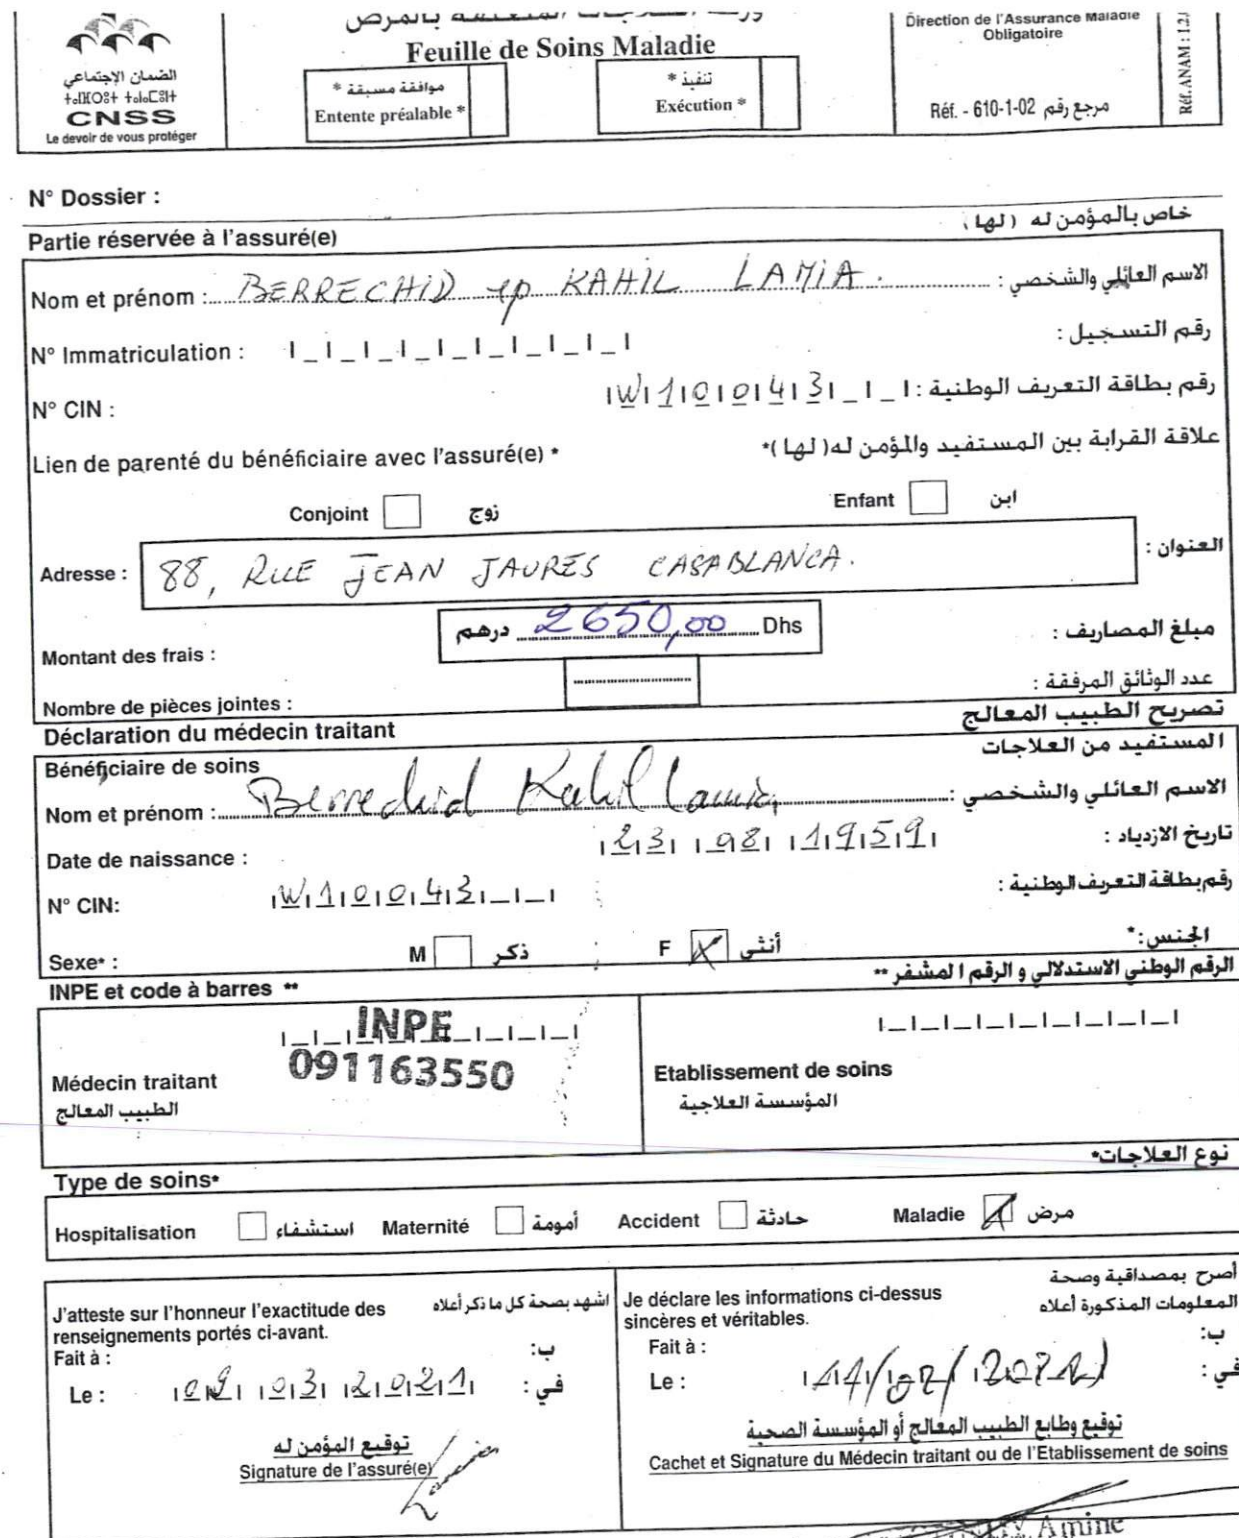 الضمان الإجتماعي
CNSS
Le devoir de vous protéger
Feuille de Soins Maladie
موافقة مسبقة *
Entente préalable *
تنفيذ *
Exécution *
Direction de l'Assurance Maladie
Obligatoire
Réf. - 610-1-02 مرجع رقم
Réf. ANAM : 1.2./
N° Dossier :
Partie réservée à l'assuré(e) خاص بالمؤمن له (لها)
Nom et prénom : BERRECHID ep KAHIL LAMIA. الاسم العائلي والشخصي :
N° Immatriculation : رقم التسجيل :
N° CIN : W10043 رقم بطاقة التعريف الوطنية :
Lien de parenté du bénéficiaire avec l'assuré(e) * علاقة القرابة بين المستفيد والمؤمن له( لها )*
Conjoint زوج Enfant ابن
Adresse : 88, RUE JEAN JAURES CASABLANCA. العنوان :
Montant des frais : درهم 2650,00 Dhs مبلغ المصاريف :
Nombre de pièces jointes : عدد الوثائق المرفقة :
Déclaration du médecin traitant تصريح الطبيب المعالج
Bénéficiaire de soins المستفيد من العلاجات
Nom et prénom : Berrechid Kahil Lamia الاسم العائلي والشخصي :
Date de naissance : 23 08 1959 تاريخ الازدياد :
N° CIN: W10043 رقم بطاقة التعريف الوطنية :
Sexe* : M ذكر F أنثى الجنس:*
INPE et code à barres ** الرقم الوطني الاستدلالي و الرقم المشفر **
INPE
091163550
Médecin traitant
الطبيب المعالج
Etablissement de soins
المؤسسة العلاجية
Type de soins* نوع العلاجات*
Hospitalisation استشفاء Maternité أمومة Accident حادثة Maladie مرض
J'atteste sur l'honneur l'exactitude des renseignements portés ci-avant. اشهد بصحة كل ما ذكر أعلاه
Fait à : ب:
Le : 03 2021 في :
توقيع المؤمن له
Signature de l'assuré(e)
Je déclare les informations ci-dessus sincères et véritables. أصرح بمصداقية وصحة المعلومات المذكورة أعلاه
Fait à : ب:
Le : في :
توقيع وطابع الطبيب المعالج أو المؤسسة الصحية
Cachet et Signature du Médecin traitant ou de l'Etablissement de soins
Amine